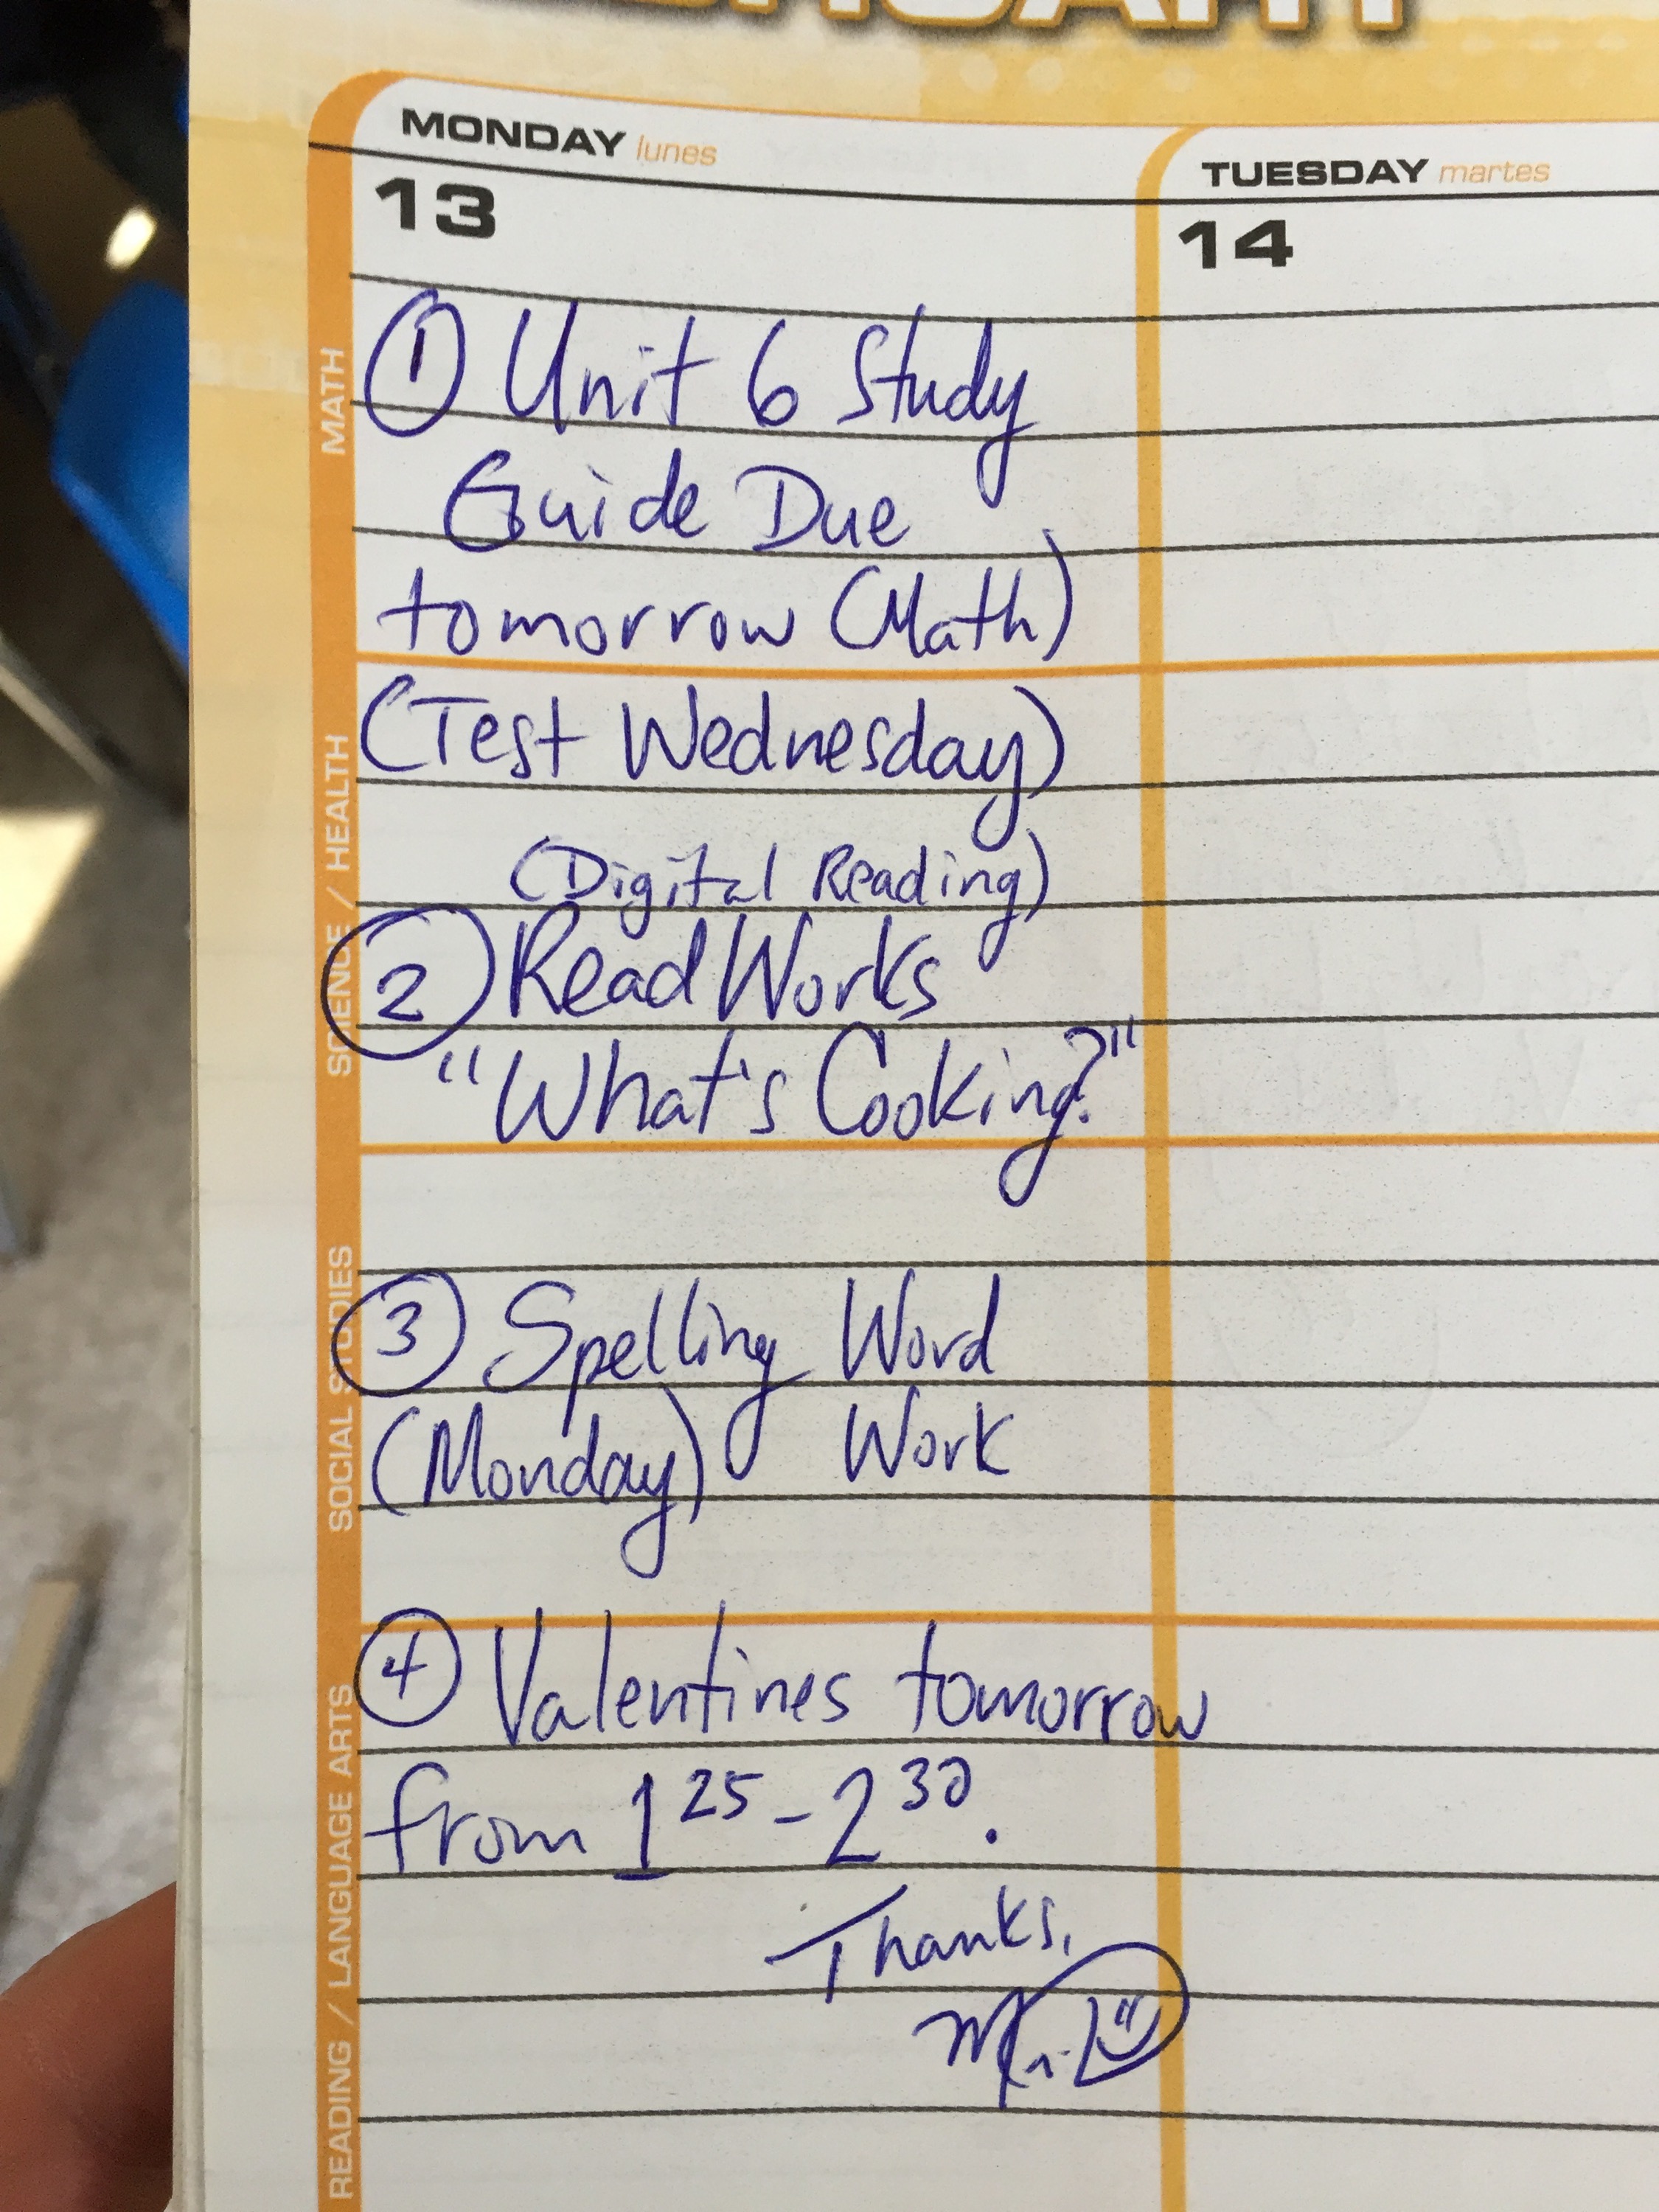 MONDAY lunes
TUESDAY martes
13
14
MATH
① Unit 6 Study
Guide Due
tomorrow (Math)
SCIENCE / HEALTH
(Test Wednesday)
(Digital Reading)
② ReadWorks
"What's Cooking?"
SOCIAL STUDIES
③ Spelling Word
(Monday) Work
READING / LANGUAGE ARTS
④ Valentines tomorrow
from 1 25 - 2 30.
Thanks,